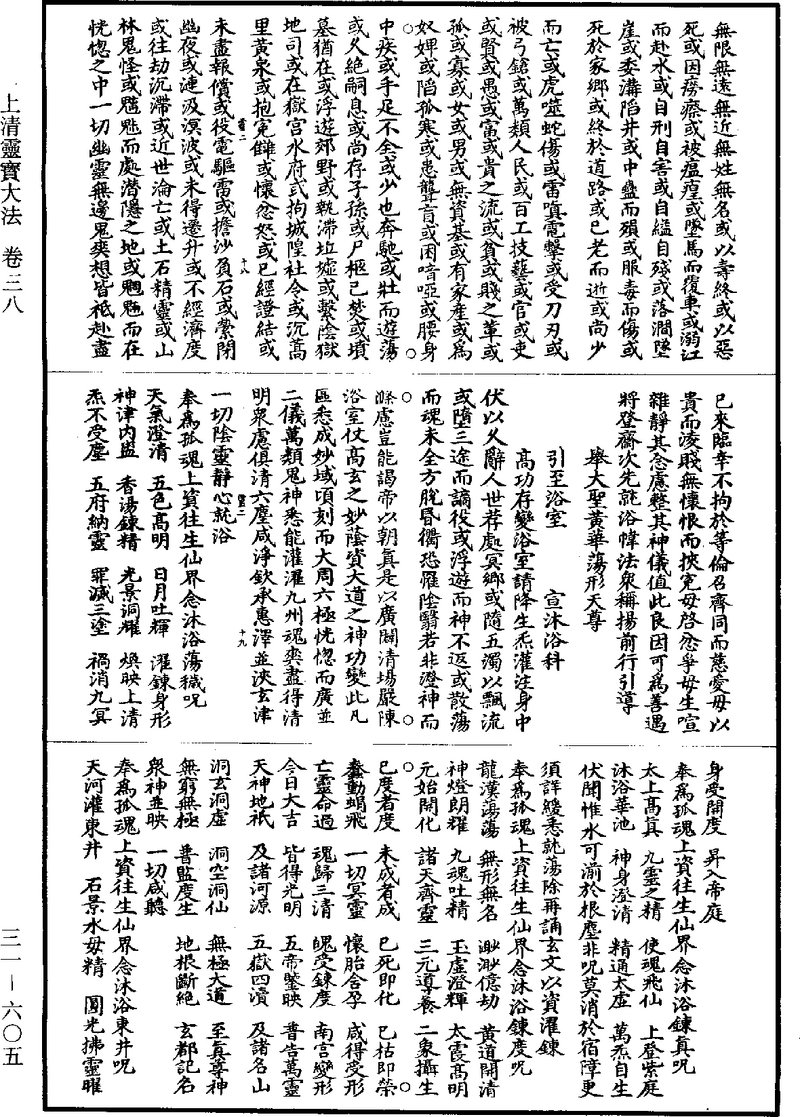 無限無遠無近無姓無名或以壽終或以惡
死或因癆瘵或被瘟瘴或墜馬而覆車或溺江
而赴水或自刑自害或自縊自殘或落澗墜
崖或委溝陷井或中蠱而殞或服毒而傷或
死於家鄉或終於道路或已老而逝或尚少
而亡或虎噬蛇傷或雷嗔電擊或受刀刃或
被弓鎗或萬類人民或百工技藝或官或吏
或賢或愚或富或貴之流或貧或賤之輩或
孤或寡或女或男或無資基或有家產或為
奴婢或陷孤寒或患聾盲或困喑啞或腰身
中疾或手足不全或少也奔馳或壯而遊蕩
或久絕嗣息或尚存子孫或尸柩已焚或墳
墓猶在或浮遊郊野或執滯垃墟或繫陰獄
地司或在嶽宮水府或拘城隍社令或沉蒿
里黃泉或抱冤讎或懷忿怒或已經證結或
未盡報償或役電驅雷或擔沙負石或縈閉
幽夜或漣汲溟波或未得遷升或不經濟度
或往劫沉滯或近世淪亡或土石精靈或山
林鬼怪或魑魅而處潛隱之地或魍魎而在
恍惚之中一切幽靈無邊鬼爽想皆祗赴盡
已來臨幸不拘於等倫召齊同而慈愛毋以
貴而淩賤無懷恨而挾冤毋啓忿爭毋生喧
雜靜其念慮整其神儀值此良因可為善遇
將登齋次先就浴幃法眾稱揚前行引導
舉大聖黃華蕩形天尊
引至浴室 宣沐浴科
高功存變浴室請降生炁灌注身中
伏以久辭人世荐處冥鄉或隨五濁以飄流
或墮三途而謫役或浮遊而神不返或散蕩
而魂未全方脫昏衢恐罹陰翳若非澄神而
滌慮豈能謁帝以朝真是以廣闢清場嚴陳
浴室仗高玄之妙蔭資大道之神功變此凡
區悉成妙域頃刻而大周六極恍惚而廣並
二儀萬類鬼神悉能灌濯九州魂爽盡得清
明眾慮俱清六塵咸淨欽承惠澤並浹玄津
一切陰靈靜心就浴
奉為孤魂上資往生仙界念沐浴蕩穢咒
天氣澄清 五色高明 日月吐輝 濯鍊身形
神津內盥 香湯鍊精 光景洞耀 煥映上清
炁不受塵 五府納靈 罪滅三塗 禍消九冥
身受開度 昇入帝庭
奉為孤魂上資往生仙界念沐浴鍊真咒
太上高真 九靈之精 使魂飛仙 上登紫庭
沐浴華池 神身澄清 精通太虛 萬炁自生
伏聞惟水可湔於根塵非呪莫消於宿障更
須詳緩悉就蕩除再誦玄文以資濯鍊
奉為孤魂上資往生仙界念沐浴鍊度咒
龍漢蕩蕩 無形無名 渺渺億劫 黃道開清
神燈朗耀 九魂吐精 玉虛澄輝 太霞高明
元始開化 諸天齊靈 三元導養 二象攝生
已度者度 未成者成 已死即化 已枯即榮
蠢動蜎飛 一切冥靈 懷胎含孕 咸得受形
亡靈命過 魂歸三清 魄受鍊度 南宮變形
今日大吉 皆得光明 五帝鑒映 普告萬靈
天神地祇 及諸河源 五嶽四瀆 及諸名山
洞玄洞虛 洞空洞仙 無極大道 至真尊神
無窮無極 普監度生 地根斷絕 玄都記名
眾神並映 一切咸聽
奉為孤魂上資往生仙界念沐浴東井咒
天河灌東井 石景水母精 圓光拂靈曜
上清靈寶大法 卷三八
三一—六〇五
十八
十九